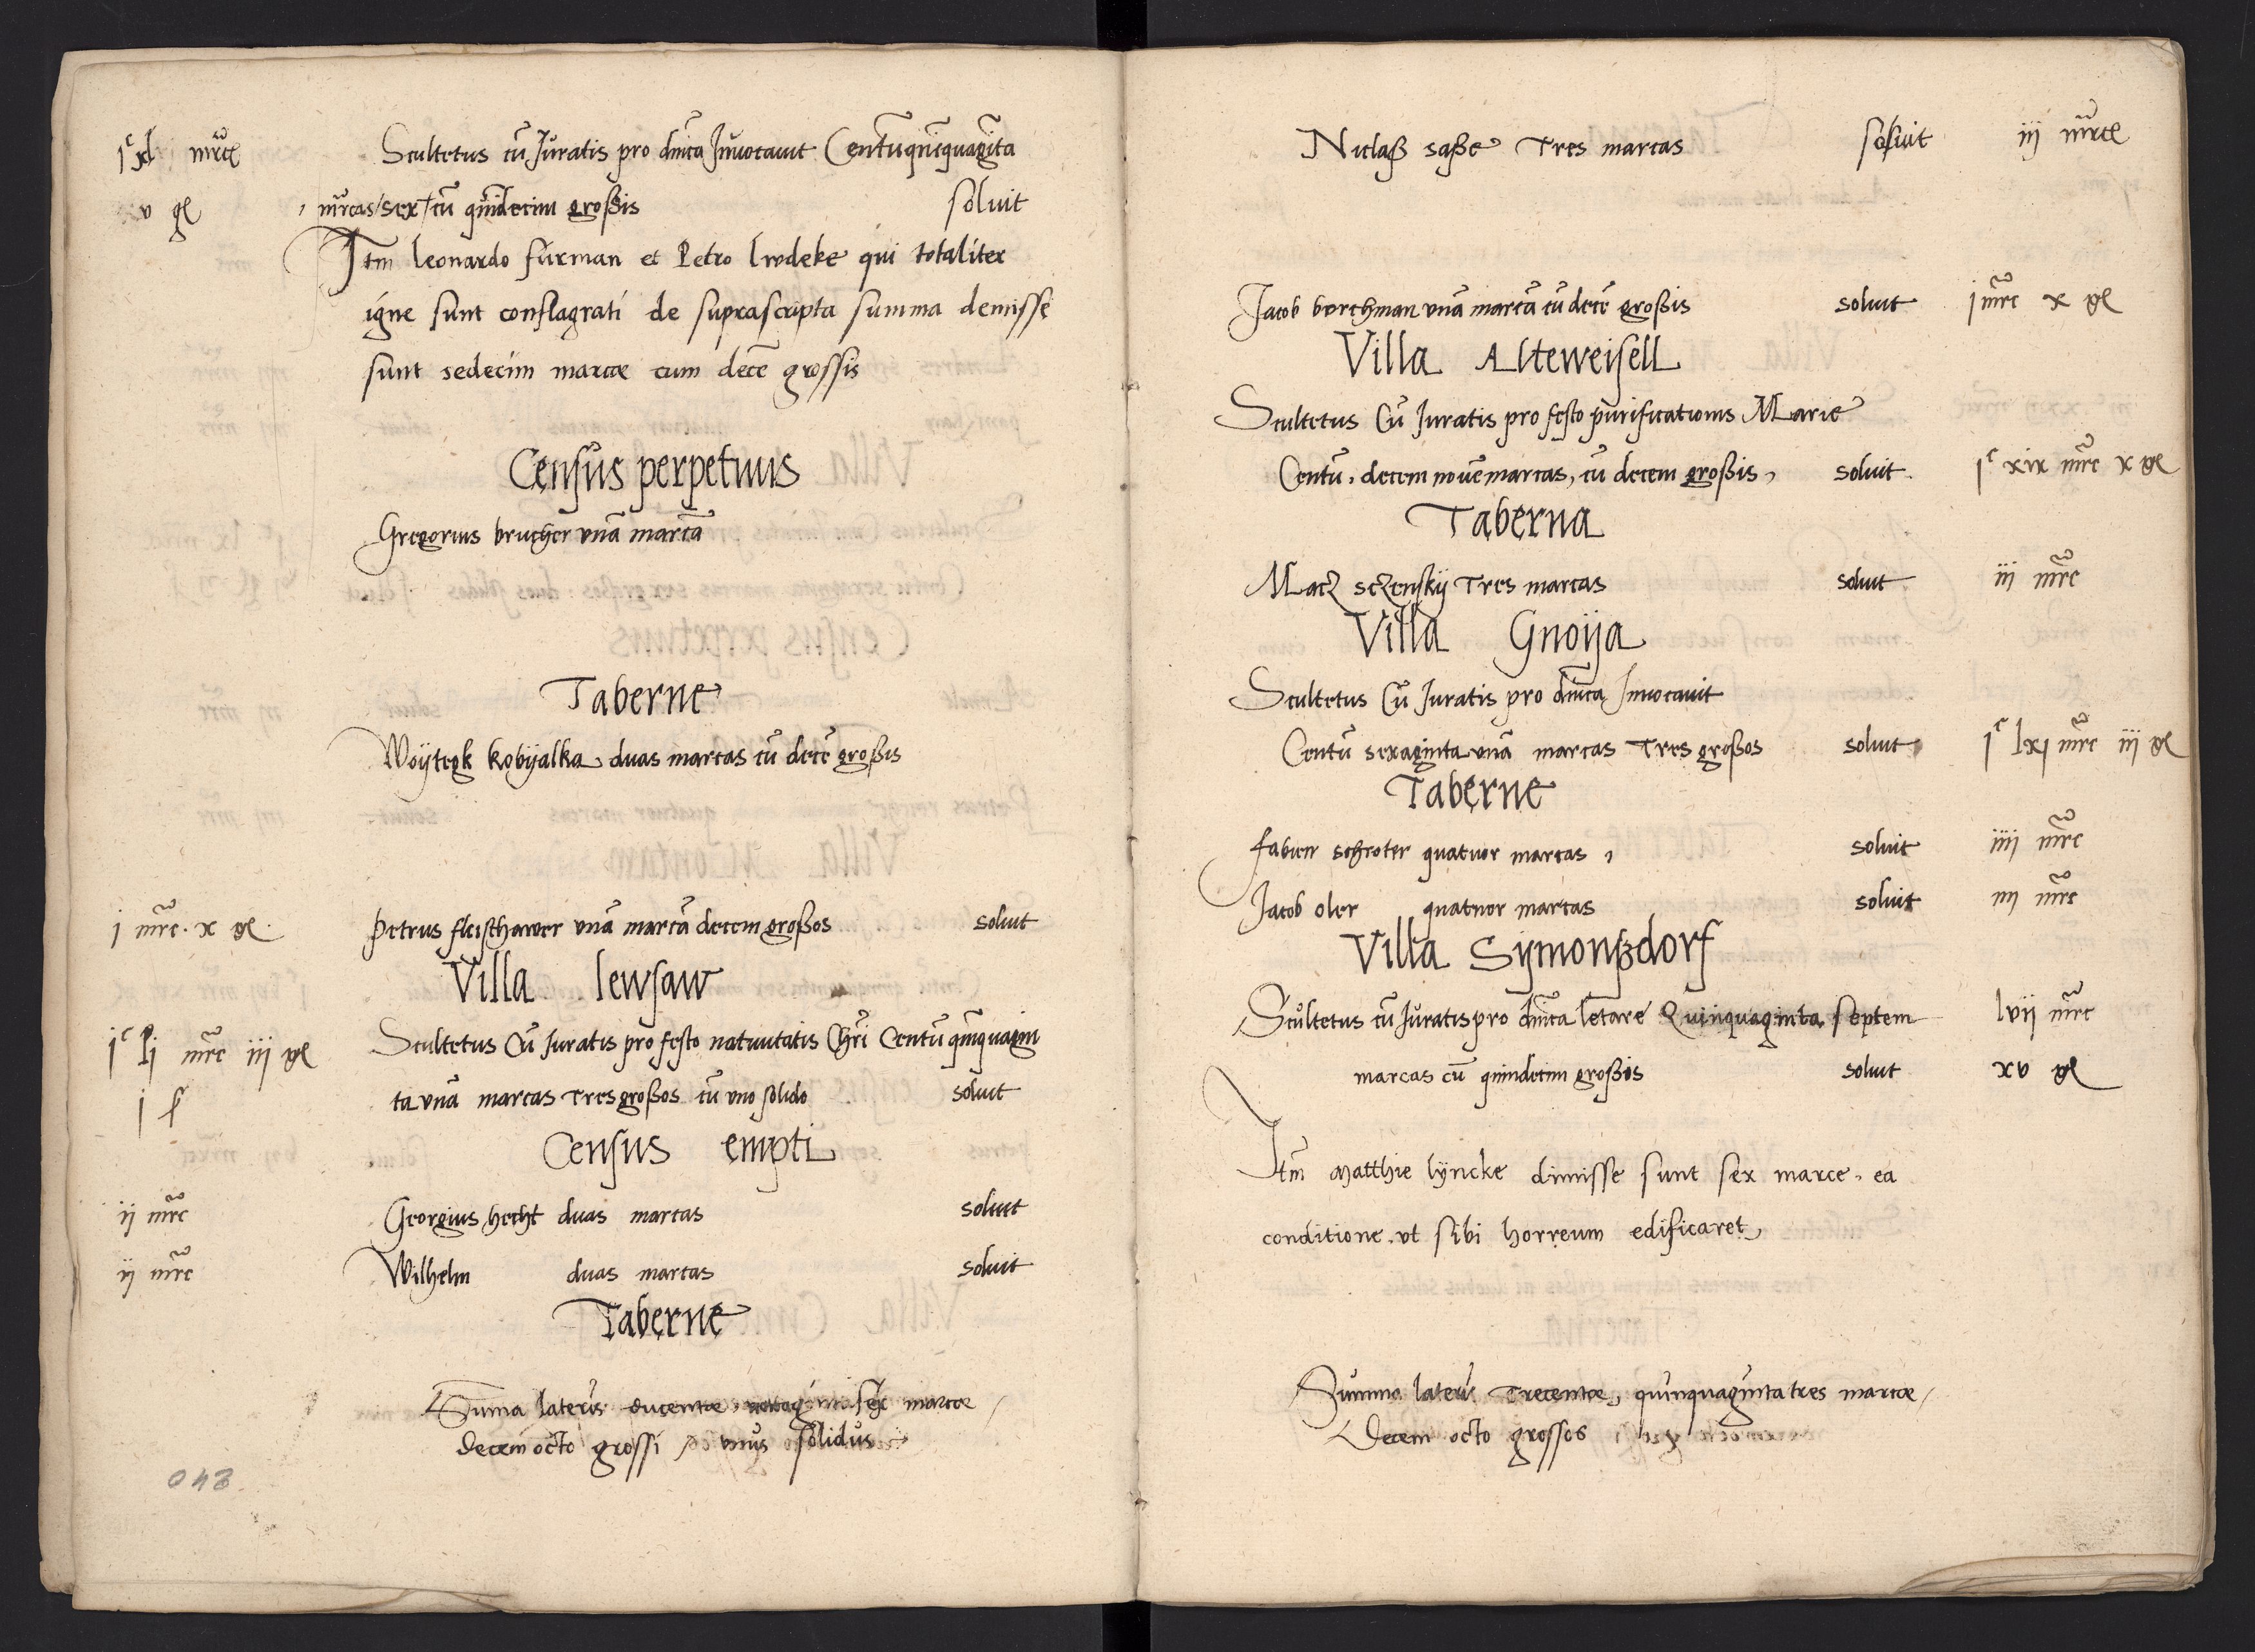 jᶜ xl mrce Scultetus cū Juratis pro dnica Invocavit Centū quiquagita
v gl mrcas sex cū quidecim großis soluit
Itm leonardo furman et Petro lwdeke qui totaliter
igne sunt conflagrati de suprascripta summa demisse
sunt sedecim marcæ cum decē grossis
Census perpetuus
Gregorius brucher vnā marcā
Taberne
Woÿtegk kobÿalka duas marcas cū decē großis
j mrc x gl Petrus fleischawer vnā marcā decem großos soluit
Villa lewsaw
jᶜ lj mrc iij gl Scultetus Cū Juratis pro festo natiuitatis Chri Centū quiquagin
j ſ ta vnā marcas Tres großos cū vno solido soluit
Census empti
ij mrc Georgius hecht duas marcas soluit
ij mrc Wilhelm duas marcas soluit
Taberne
Suma lateris ducentæ sex marcæ
Decem octo grossi vnus solidus
043
Niclaß saße Tres marcas soluit iij mrce
Jacob borchman vnā marcā cū decē großis soluit j mrc x gl
Villa Alteweisell
Scultetus Cū Juratis pro festo purificationis Marie
Centū, decem nouē marcas, cū decem großis, soluit jᶜ xix mrc x gl
Taberna
Macz sczenskÿ Tres marcas soluit iij mrc
Villa Gnoÿa
Scultetus Cū Juratis pro dnica Invocauit
Centū sexaginta vnā marcas Tres großos soluit jᶜ lxj mrc iij gl
Taberne
fabien schroter quatuor marcas, soluit iiij mrc
Jacob oler quatuor marcas soluit iiij mrc
Villa Sÿmonßdorf
Scultetus cū Juratis pro dnica letare Quinquaginta septem lvij mrc
marcas cū quindecim großis soluit xv gl
Itm Matthie lÿncke dimisse sunt sex marce, ea
conditione, vt sibi horreum edificaret
Summa lateris Trecentæ, quinquaginta tres marcæ
Decem octo grossos